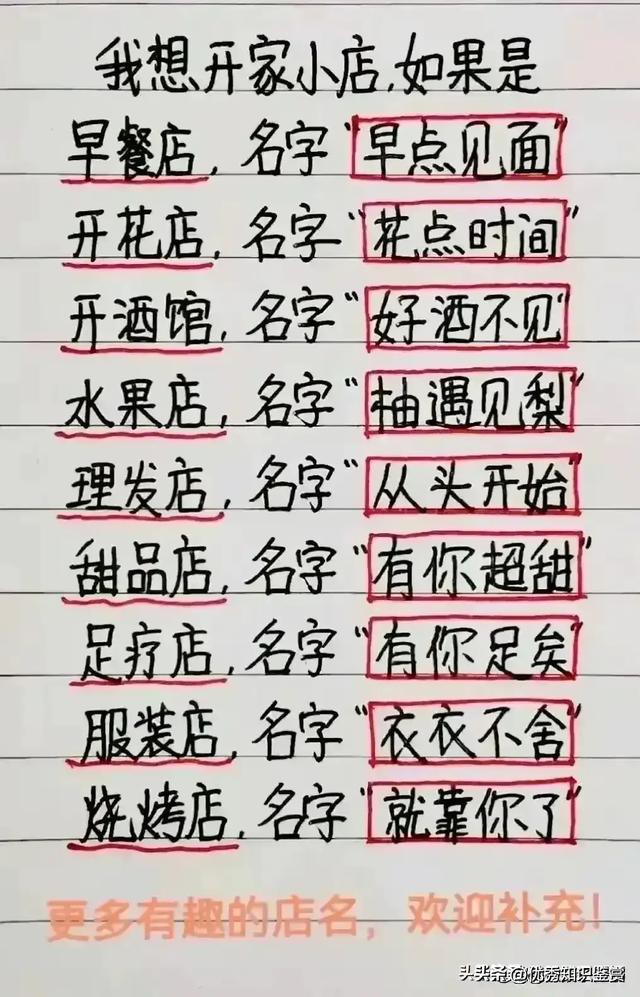 我想开家小店,如果是
早餐店,名字"早点见面"
开花店,名字"花点时间"
开酒馆,名字"好酒不见"
水果店,名字"柚遇见梨"
理发店,名字"从头开始"
甜品店,名字"有你超甜"
足疗店,名字"有你足矣"
服装店,名字"衣衣不舍"
烧烤店,名字"就靠你了"
更多有趣的店名,欢迎补充!
头条 @优秀知识鉴赏